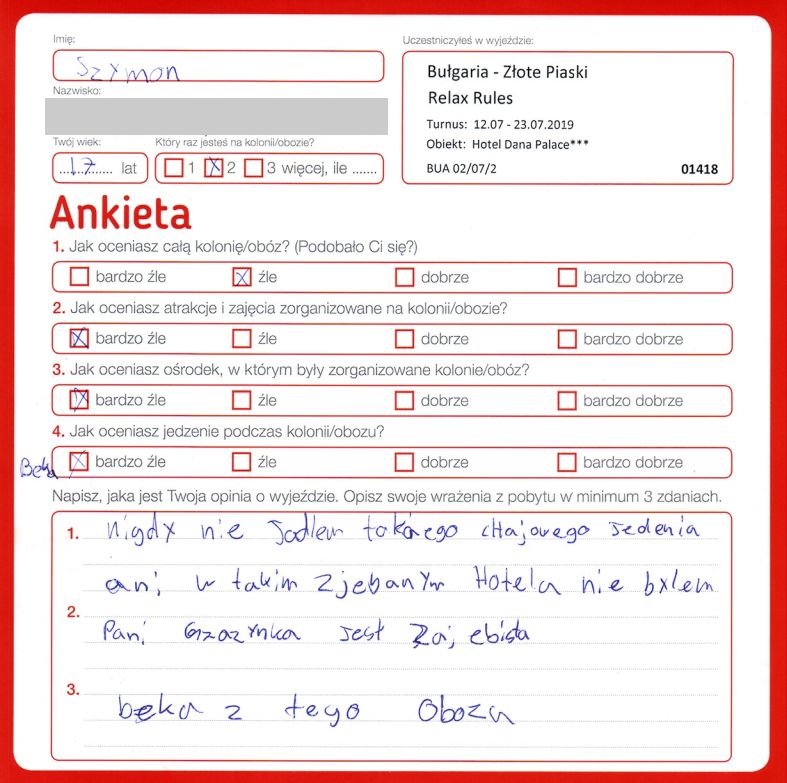 Imię:
Szymon
Nazwisko:
Twój wiek:
17 lat
Który raz jesteś na kolonii/obozie?
1 2 3 więcej, ile .......
Uczestniczyłeś w wyjeździe:
Bułgaria - Złote Piaski
Relax Rules
Turnus: 12.07 - 23.07.2019
Obiekt: Hotel Dana Palace***
BUA 02/07/2 01418
Ankieta
1. Jak oceniasz całą kolonię/obóz? (Podobało Ci się?)
bardzo źle źle dobrze bardzo dobrze
2. Jak oceniasz atrakcje i zajęcia zorganizowane na kolonii/obozie?
bardzo źle źle dobrze bardzo dobrze
3. Jak oceniasz ośrodek, w którym były zorganizowane kolonie/obóz?
bardzo źle źle dobrze bardzo dobrze
4. Jak oceniasz jedzenie podczas kolonii/obozu?
Beka bardzo źle źle dobrze bardzo dobrze
Napisz, jaka jest Twoja opinia o wyjeździe. Opisz swoje wrażenia z pobytu w minimum 3 zdaniach.
1. nigdy nie jadlem takiego chajowego jedenia
ani w takim zjebanym Hotelu nie bylem
2.
Pani Grazynka jest zajebista
3.
beka z tego Obozu